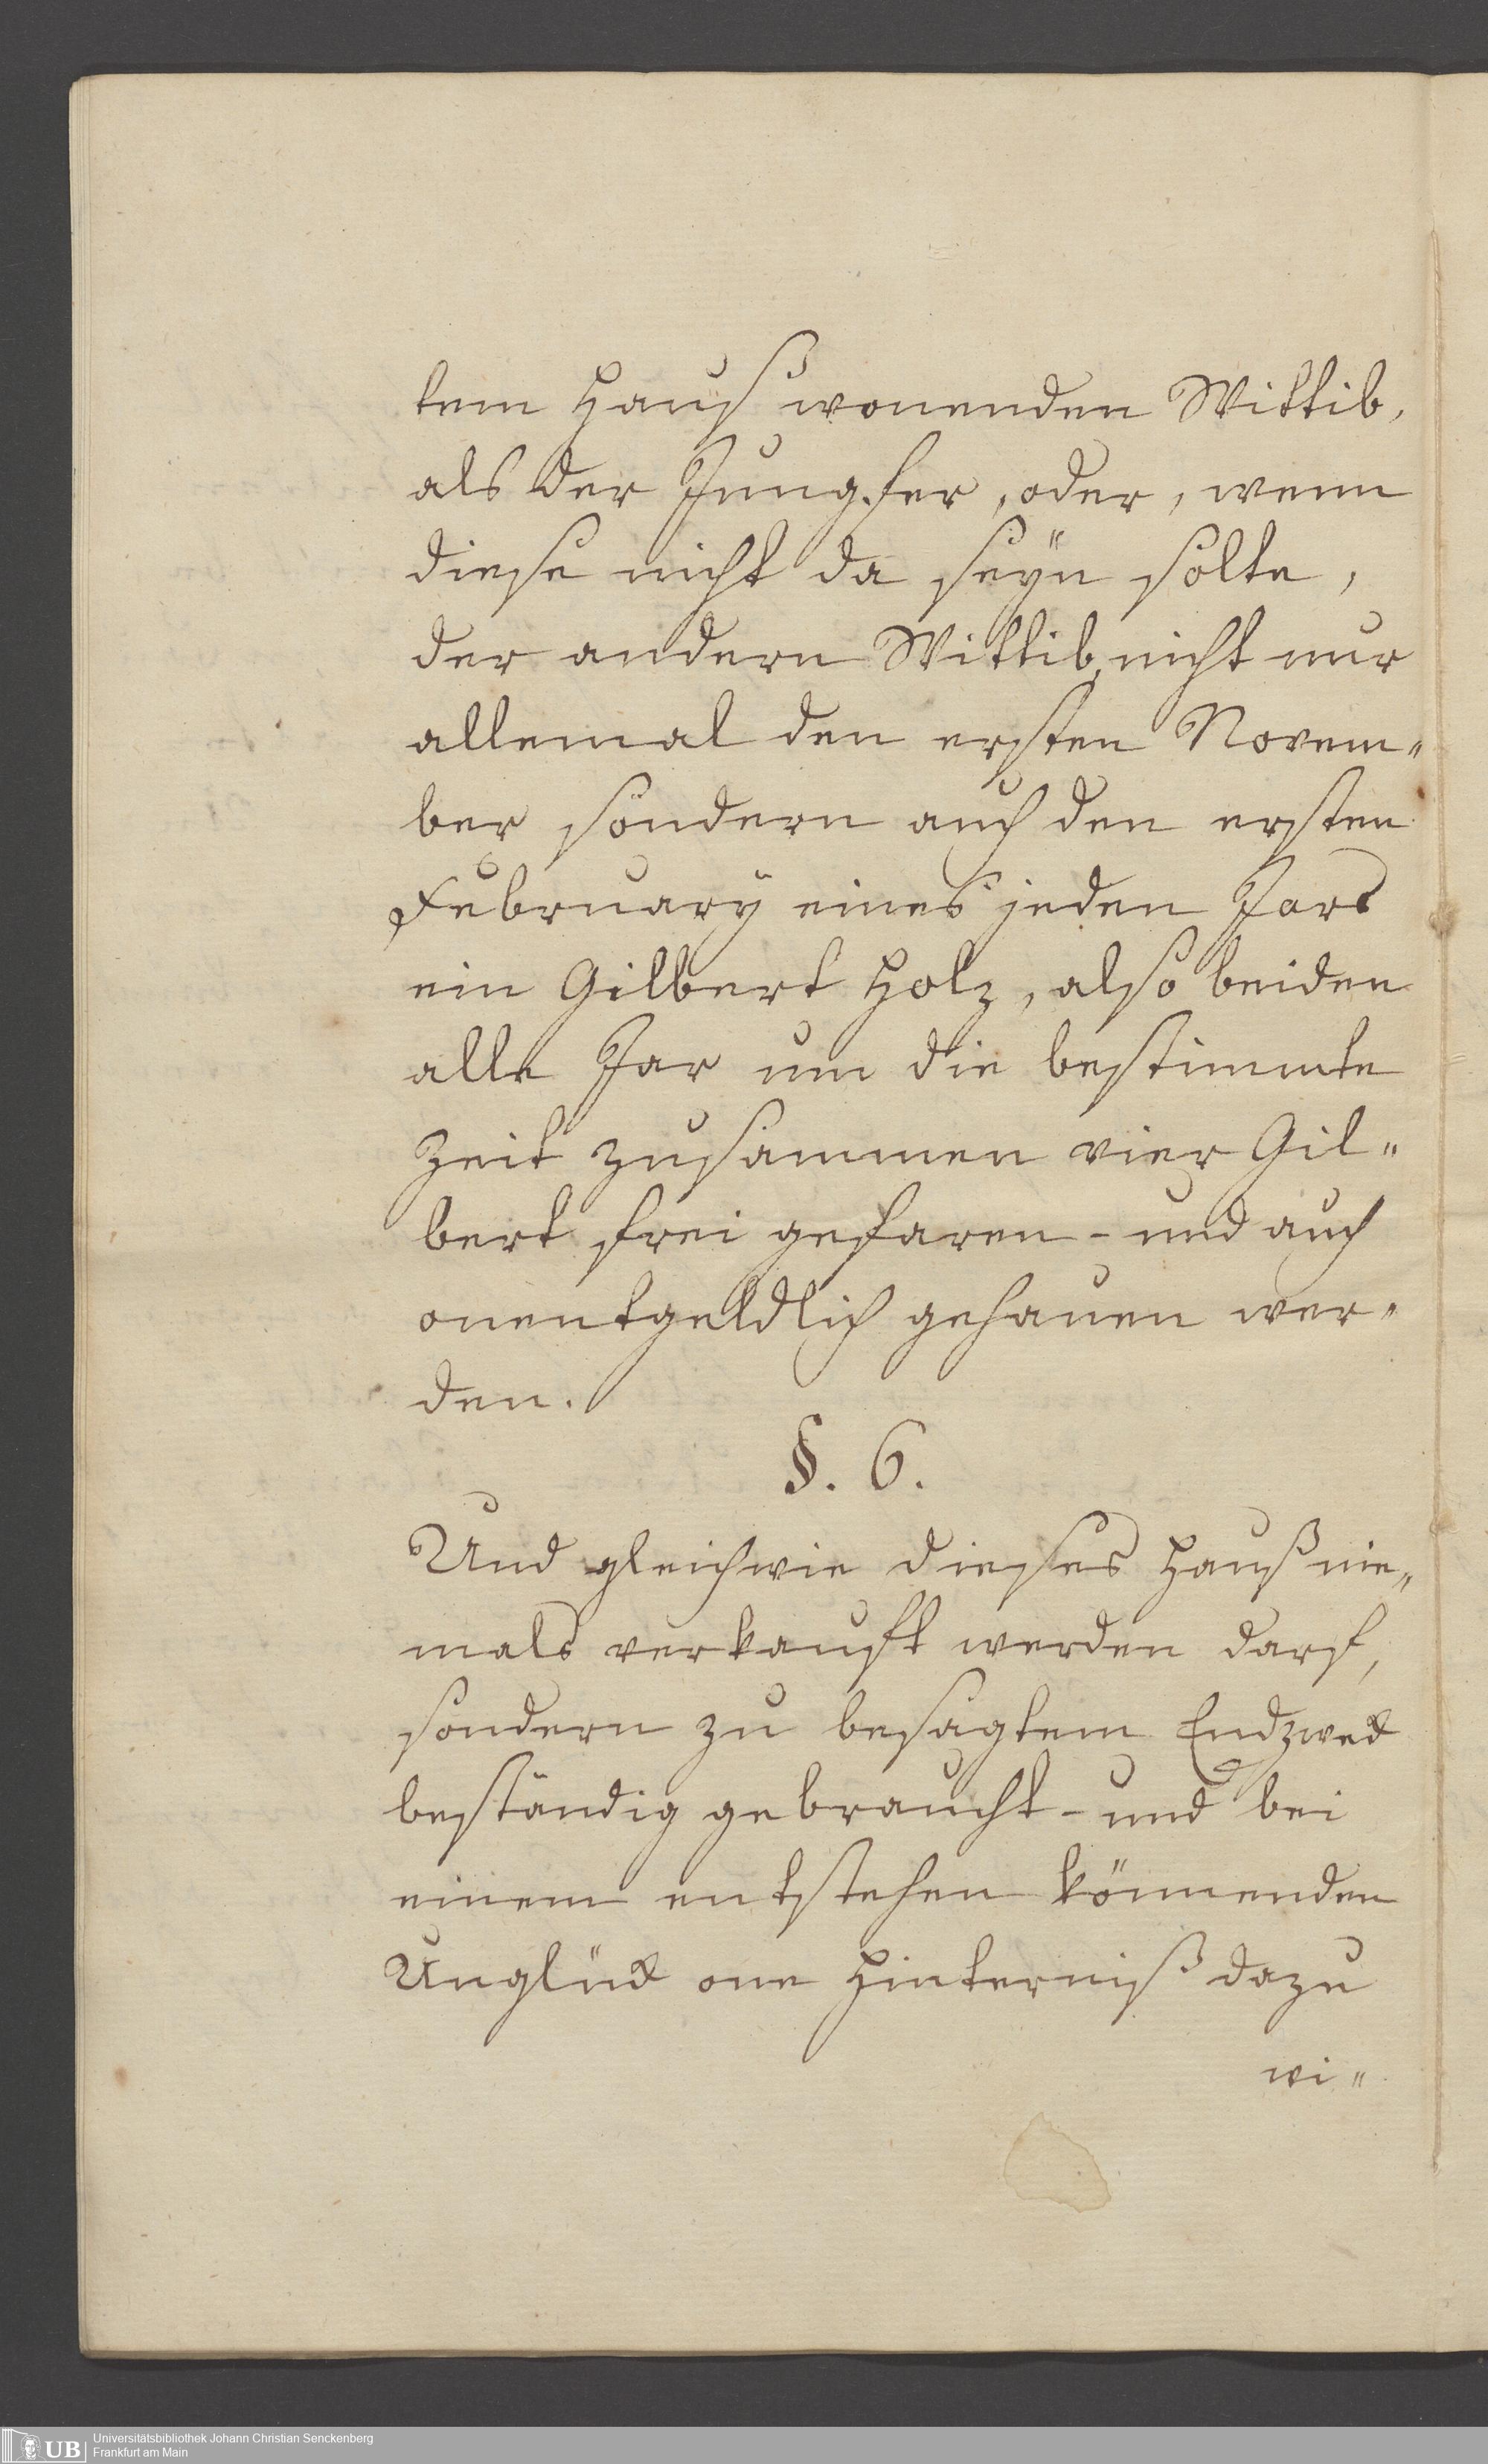 tem Hauß wonenden Wittib,
als der Jungfer, oder, wenn
diese nicht da seÿn solte,
der andern Wittib, nicht nur
allemal den ersten Novem„
ber sondern auch den ersten
Februarÿ eines jeden Jars
ein Gilbert Holz, also beiden
alle Jar um die bestimmte
Zeit zusammen vier Gil„
bert frei gefaren - und auch
onentgeldlich gehauen wer„
den.
§. 6.
Und gleichwie dieses Hauß nie„
mals verkauft werden darf,
sondern zu besagtem Endzweck
beständig gebraucht - und bei
einem entstehen könnenden
Unglück one Hinterniß dazu
wi„
UB
Universitätsbibliothek Johann Christian Senckenberg
Frankfurt am Main